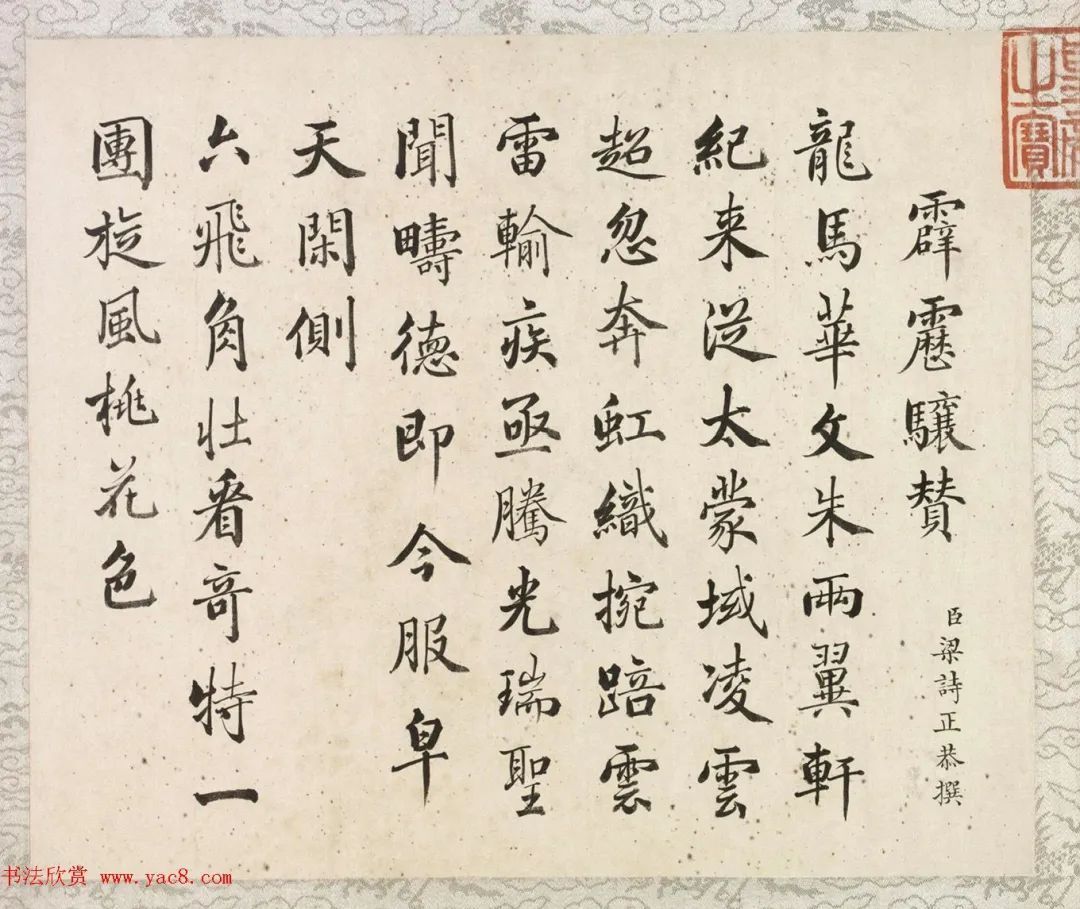 霹靂驤賛
臣梁詩正恭撰
龍馬華文朱兩翼軒
紀来從太蒙域凌雲
超忽奔虹織捥踣雲
雷輸疾亟騰光瑞聖
聞疇德即今服皁
天閑側
六飛角壮看奇特一
團旋風桃花色
之寶
书法欣赏 www.yac8.com